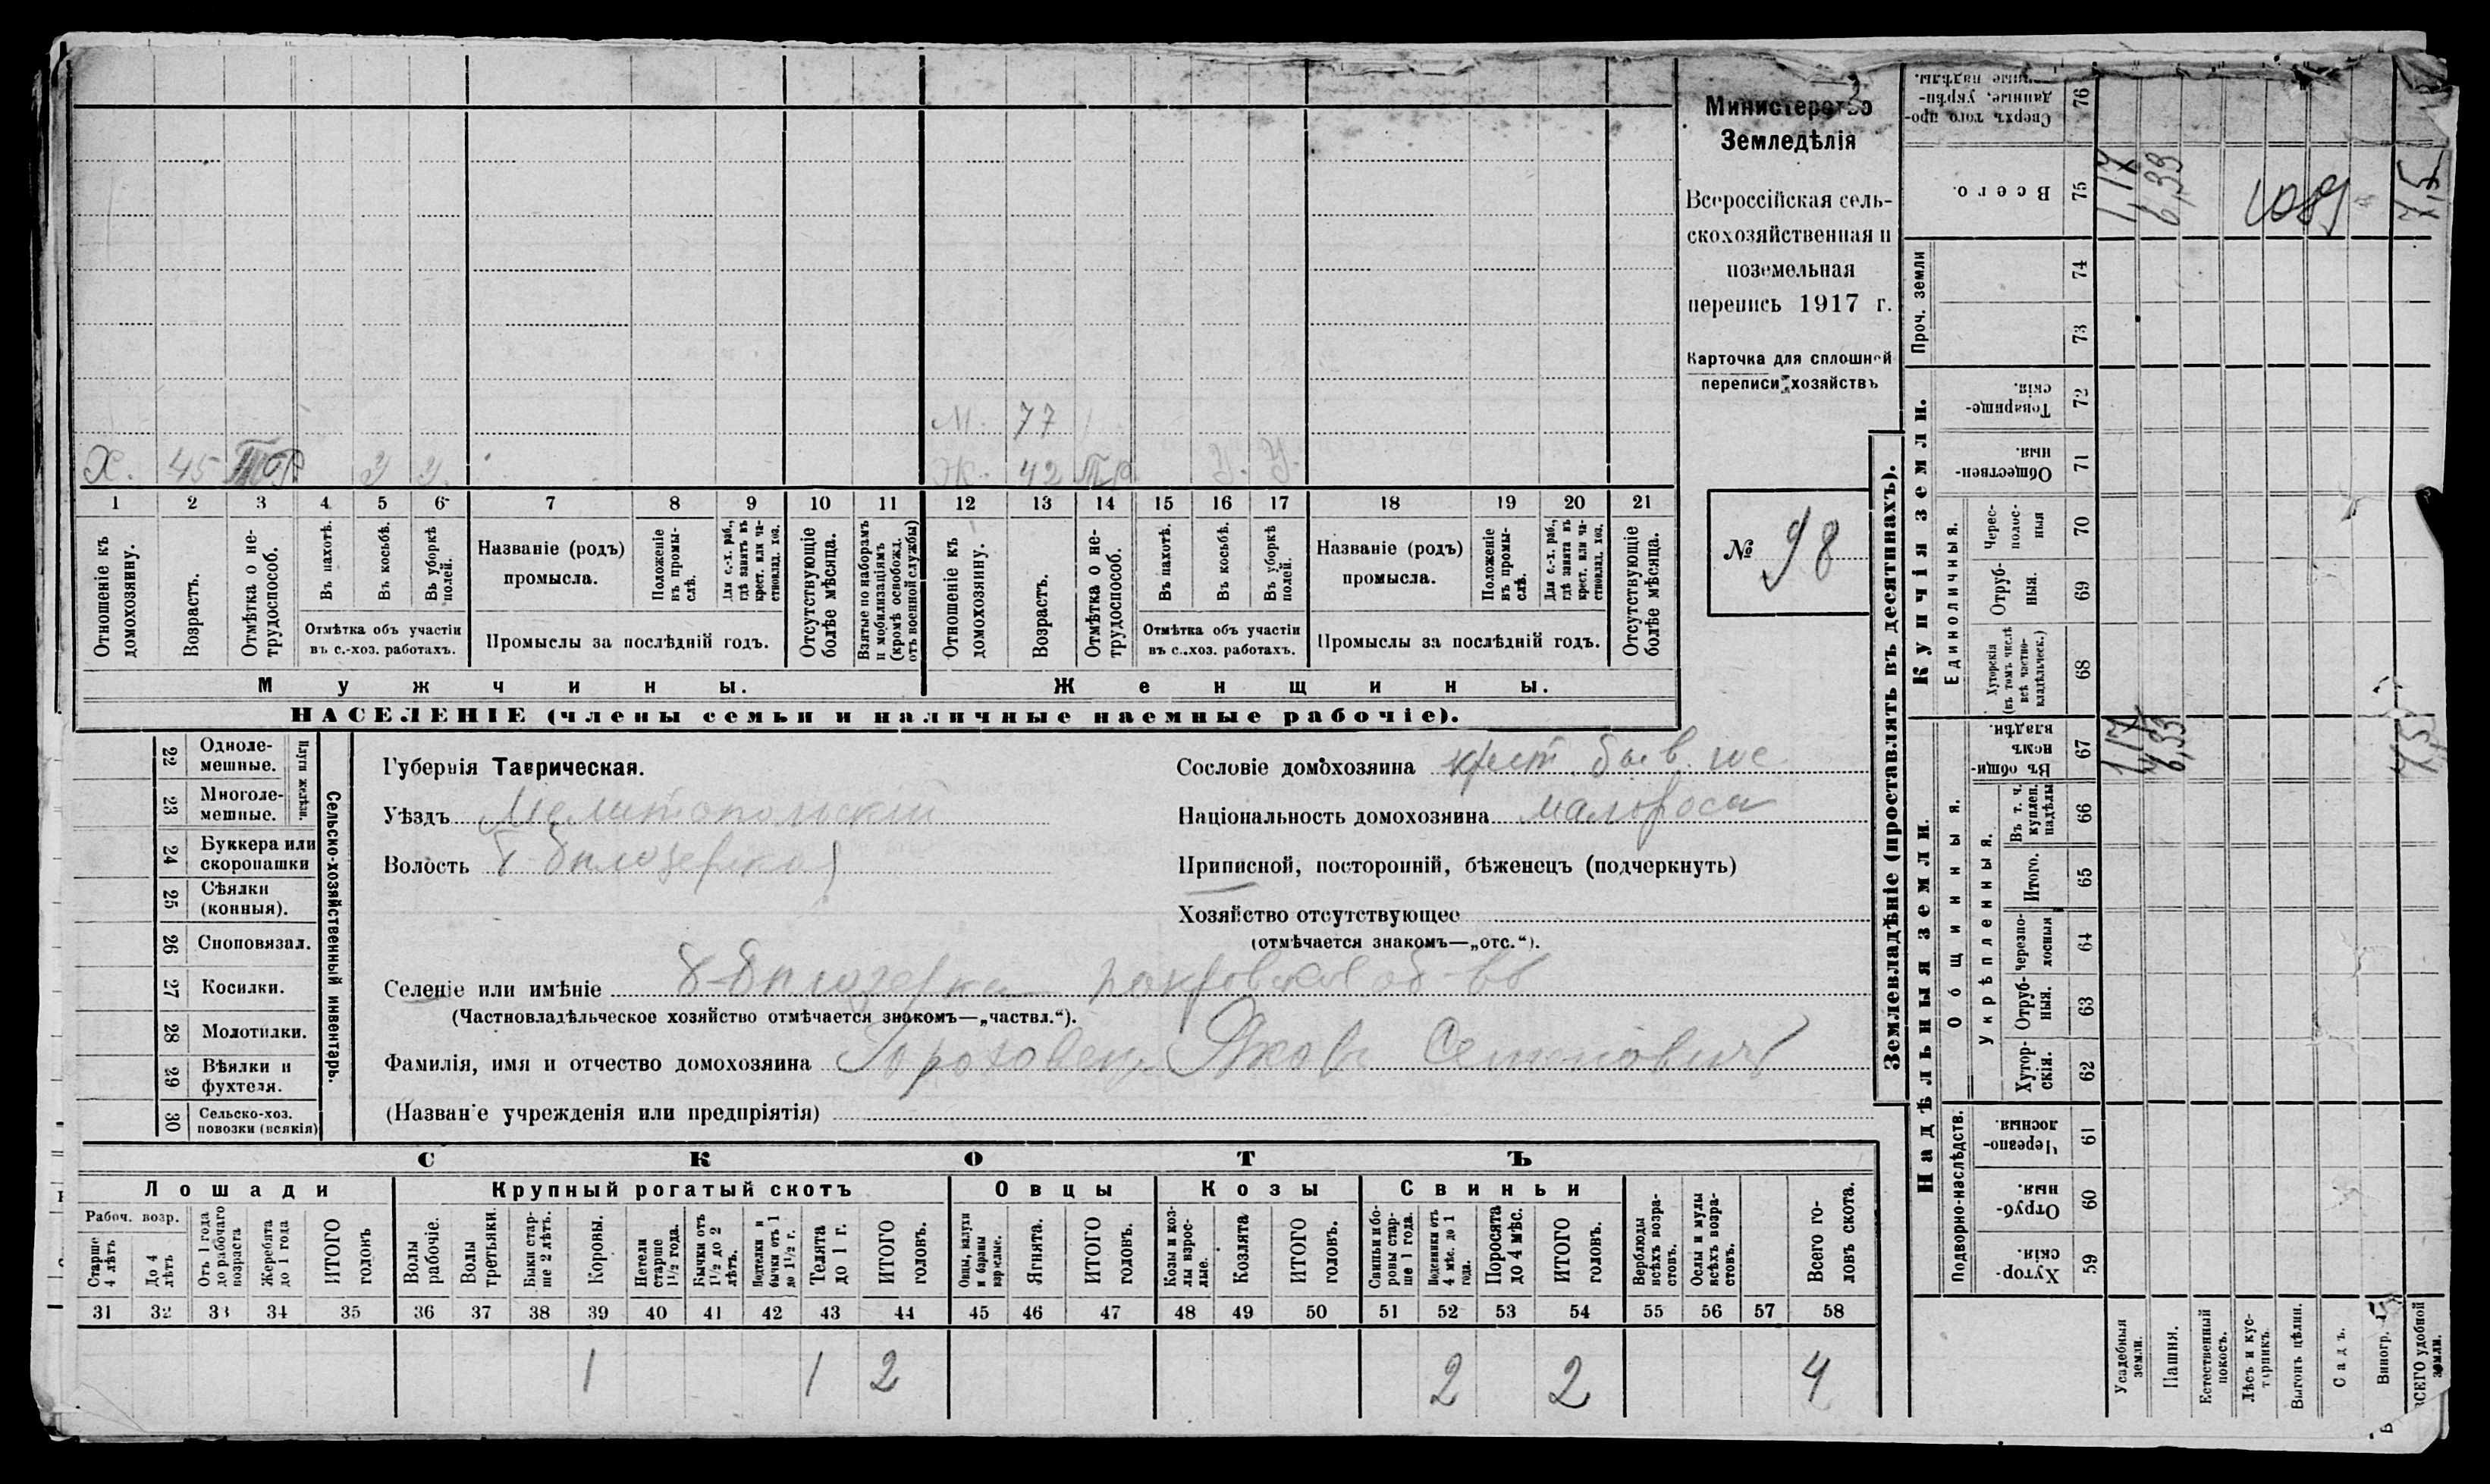 Министерство
Земледѣлія
Всероссійская сель-
скохозяйственная и
поземельная
перепись 1917 г.
Карточка для сплошной
переписи хозяйствъ
№ 98
М. 77
Х. 45 ТР У У. Ж. 42 ТР У. У.
1 2 3 4 5 6 7 8 9 10 11 12 13 14 15 16 17 18 19 20 21
Отношеніе къ домохозяину.
Возрастъ.
Отмѣтка о не-трудоспособ.
Въ пахотѣ.
Въ косьбѣ.
Въ уборкѣ полей.
Отмѣтка объ участіи
въ с.-хоз. работахъ.
Названіе (родъ)
промысла.
Положеніе въ промы-слѣ.
Для с.-х. раб., гдѣ занятъ въ крест. или ча-стновлад. хоз.
Промыслы за послѣдній годъ.
Отсутствующіе болѣе мѣсяца.
Взятые по наборамъ и мобилизаціямъ (кромѣ освобожд. отъ военной службы)
Отношеніе къ домохозяину.
Возрастъ.
Отмѣтка о не-трудоспособ.
Въ пахотѣ.
Въ косьбѣ.
Въ уборкѣ полей.
Отмѣтка объ участіи
въ с.-хоз. работахъ.
Названіе (родъ)
промысла.
Положеніе въ промы-слѣ.
Для с.-х. раб., гдѣ занята въ крест. или ча-стновлад. хоз.
Промыслы за послѣдній годъ.
Отсутствующіе болѣе мѣсяца.
Мужчины. Женщины.
НАСЕЛЕНІЕ (члены семьи и наличные наемные рабочіе).
Сельско-хозяйственный инвентарь.
Плуги желѣзн.
22 Одноле-мешные.
23 Многоле-мешные.
24 Буккера или скоропашки
25 Сѣялки (конныя).
26 Сноповязал.
27 Косилки.
28 Молотилки.
29 Вѣялки и фухтеля.
30 Сельско-хоз. повозки (всякія)
Губернія Таврическая.
Уѣздъ Мелитопольскій
Волость Б Бѣлозерская
Сословіе домохозяина крест. быв. гос
Національность домохозяина малоросъ
Приписной, посторонній, бѣженецъ (подчеркнуть)
Хозяйство отсутствующее
(отмѣчается знакомъ—„отс.“).
Селеніе или имѣніе Б-Бѣлозерка покровское об-во
(Частновладѣльческое хозяйство отмѣчается знакомъ—„частвл.“).
Фамилія, имя и отчество домохозяина Гороховец Яковъ Семеновичъ
(Названіе учрежденія или предпріятія)
СКОТЪ
Лошади Крупный рогатый скотъ Овцы Козы Свиньи
Рабоч. возр.
Старше 4 лѣтъ
До 4 лѣтъ
Отъ 1 года до рабочаго возраста
Жеребята до 1 года
ИТОГО головъ
Волы рабочіе.
Волы третьяки.
Быки стар-ше 2 лѣтъ.
Коровы.
Нетели старше 1½ года.
Бычки отъ 1½ до 2 лѣтъ.
Подтелки и бычки отъ 1 до 1½ г.
Телята до 1 г.
ИТОГО головъ.
Овцы, валухи и бараны взрослые.
Ягнята.
ИТОГО головъ.
Козы и коз-лы взрос-лые.
Козлята
ИТОГО головъ.
Свиньи и бо-ровы стар-ше 1 года.
Подсвинки отъ 4 мѣс. до 1 года.
Поросята до 4 мѣс.
ИТОГО головъ.
Верблюды всѣхъ возра-стовъ.
Ослы и мулы всѣхъ возра-стовъ.
Всего го-ловъ скота.
31 32 33 34 35 36 37 38 39 40 41 42 43 44 45 46 47 48 49 50 51 52 53 54 55 56 57 58
1 1 2 2 2 4
Землевладѣніе (проставлять въ десятинахъ).
Купчія земли.
Надѣльныя земли.
Сверхъ того про-данные, укрѣп-
76
Всего.
75
1,17
6,33
7,5
Проч. земли
74
73
Товарище-скія.
72
Обществен-ныя.
71
Единоличныя.
Черес-полос-ныя
70
Отруб-ныя.
69
Хуторскія (въ томъ числѣ всѣ частно-владѣльческ.)
68
Общинныя.
Въ общи-номъ владѣн.
67
1,17
6,33
7,5
Укрѣпленныя.
Въ т. ч. куплен. надѣлы
66
Итого.
65
Черезпо-лосныя
64
Отруб-ныя.
63
Хутор-скія.
62
Подворно-наслѣдств.
Черезпо-лосныя.
61
Отруб-ныя.
60
Хутор-скія.
59
Усадебныя земли.
Пашня.
Естественный покосъ.
Лѣсъ и кус-тарникъ.
Выгонъ цѣлин.
Садъ.
Виногр.
ВСЕГО удобной земли.